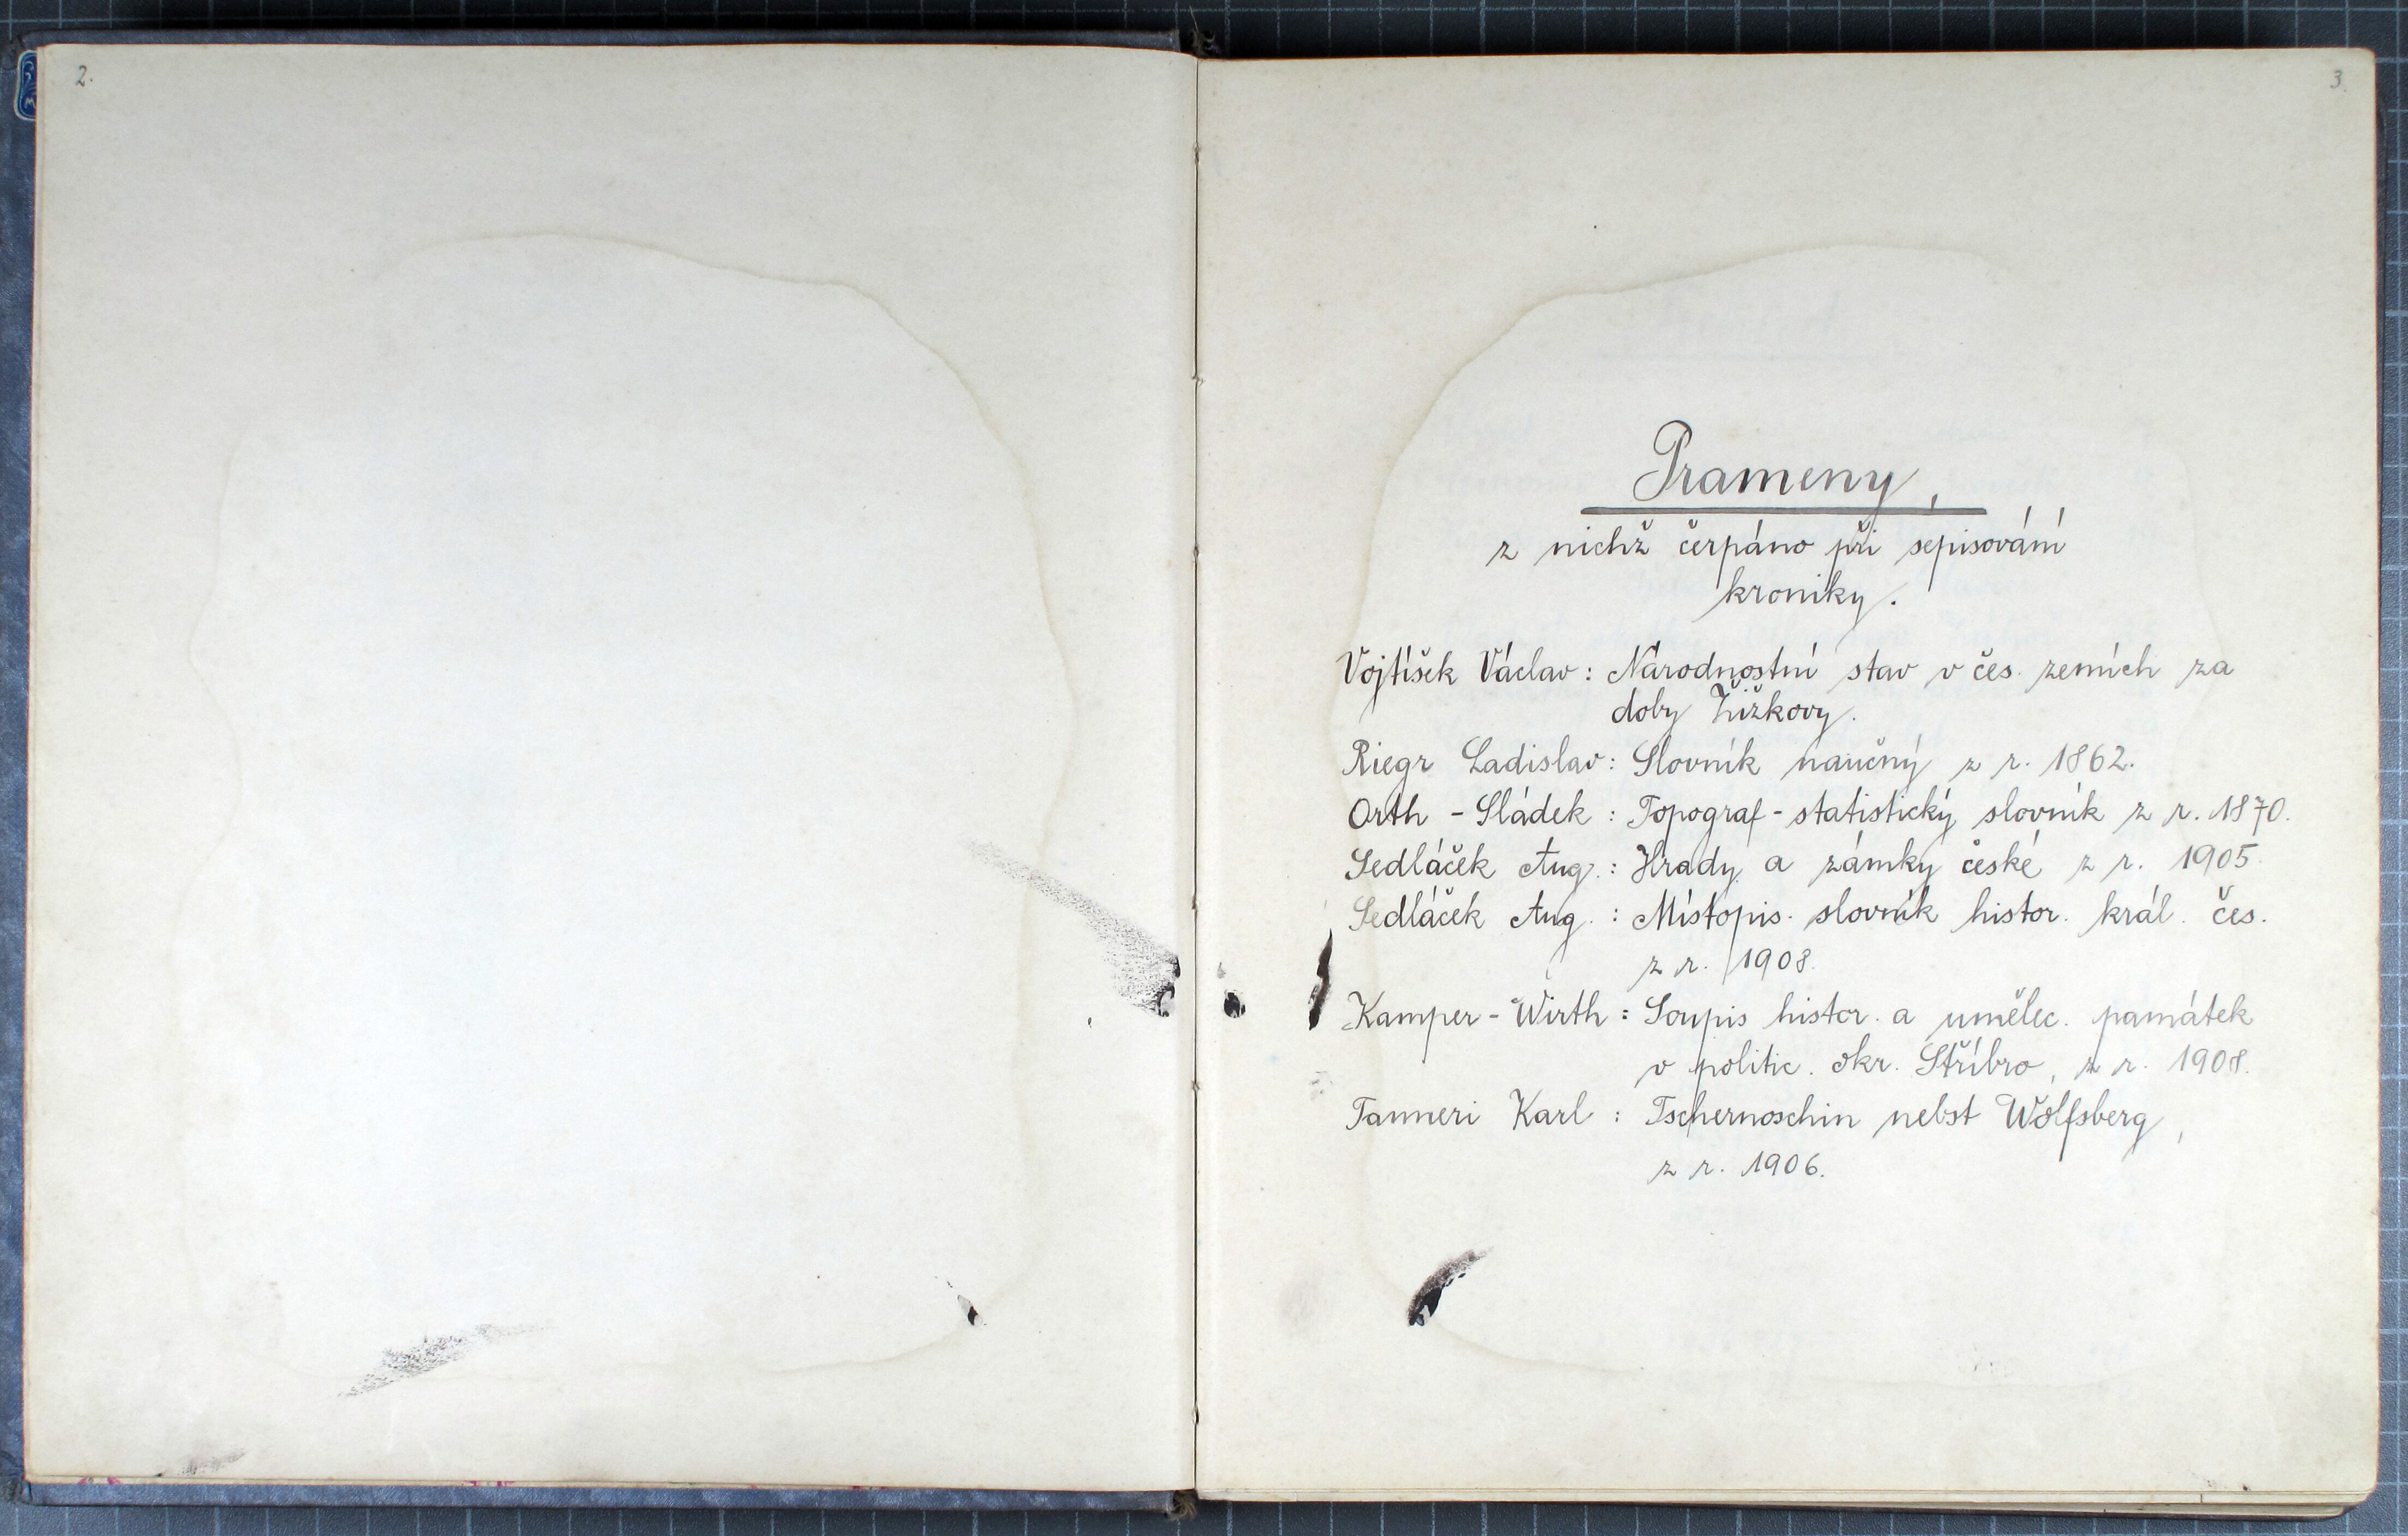 2.
3.
Prameny,
z nichž čerpáno při sepisování
kroniky.
Vojtíšek Václav: Národnostní stav v čes. zemích za
doby Žižkovy.
Riegr Ladislav: Slovník naučný z r. 1862.
Orth - Sládek : Topograf - statistický slovník z r. 1870.
Sedláček Aug.: Hrady a zámky české z r. 1905.
Sedláček Aug. : Místopis. slovník histor. král. čes.
z r. 1908.
Kamper - Wirth : Soupis histor. a umělec. památek
v politic. okr. Stříbro, z r. 1908.
Tanneri Karl : Tschernoschin nebst Wolfsberg,
z r. 1906.